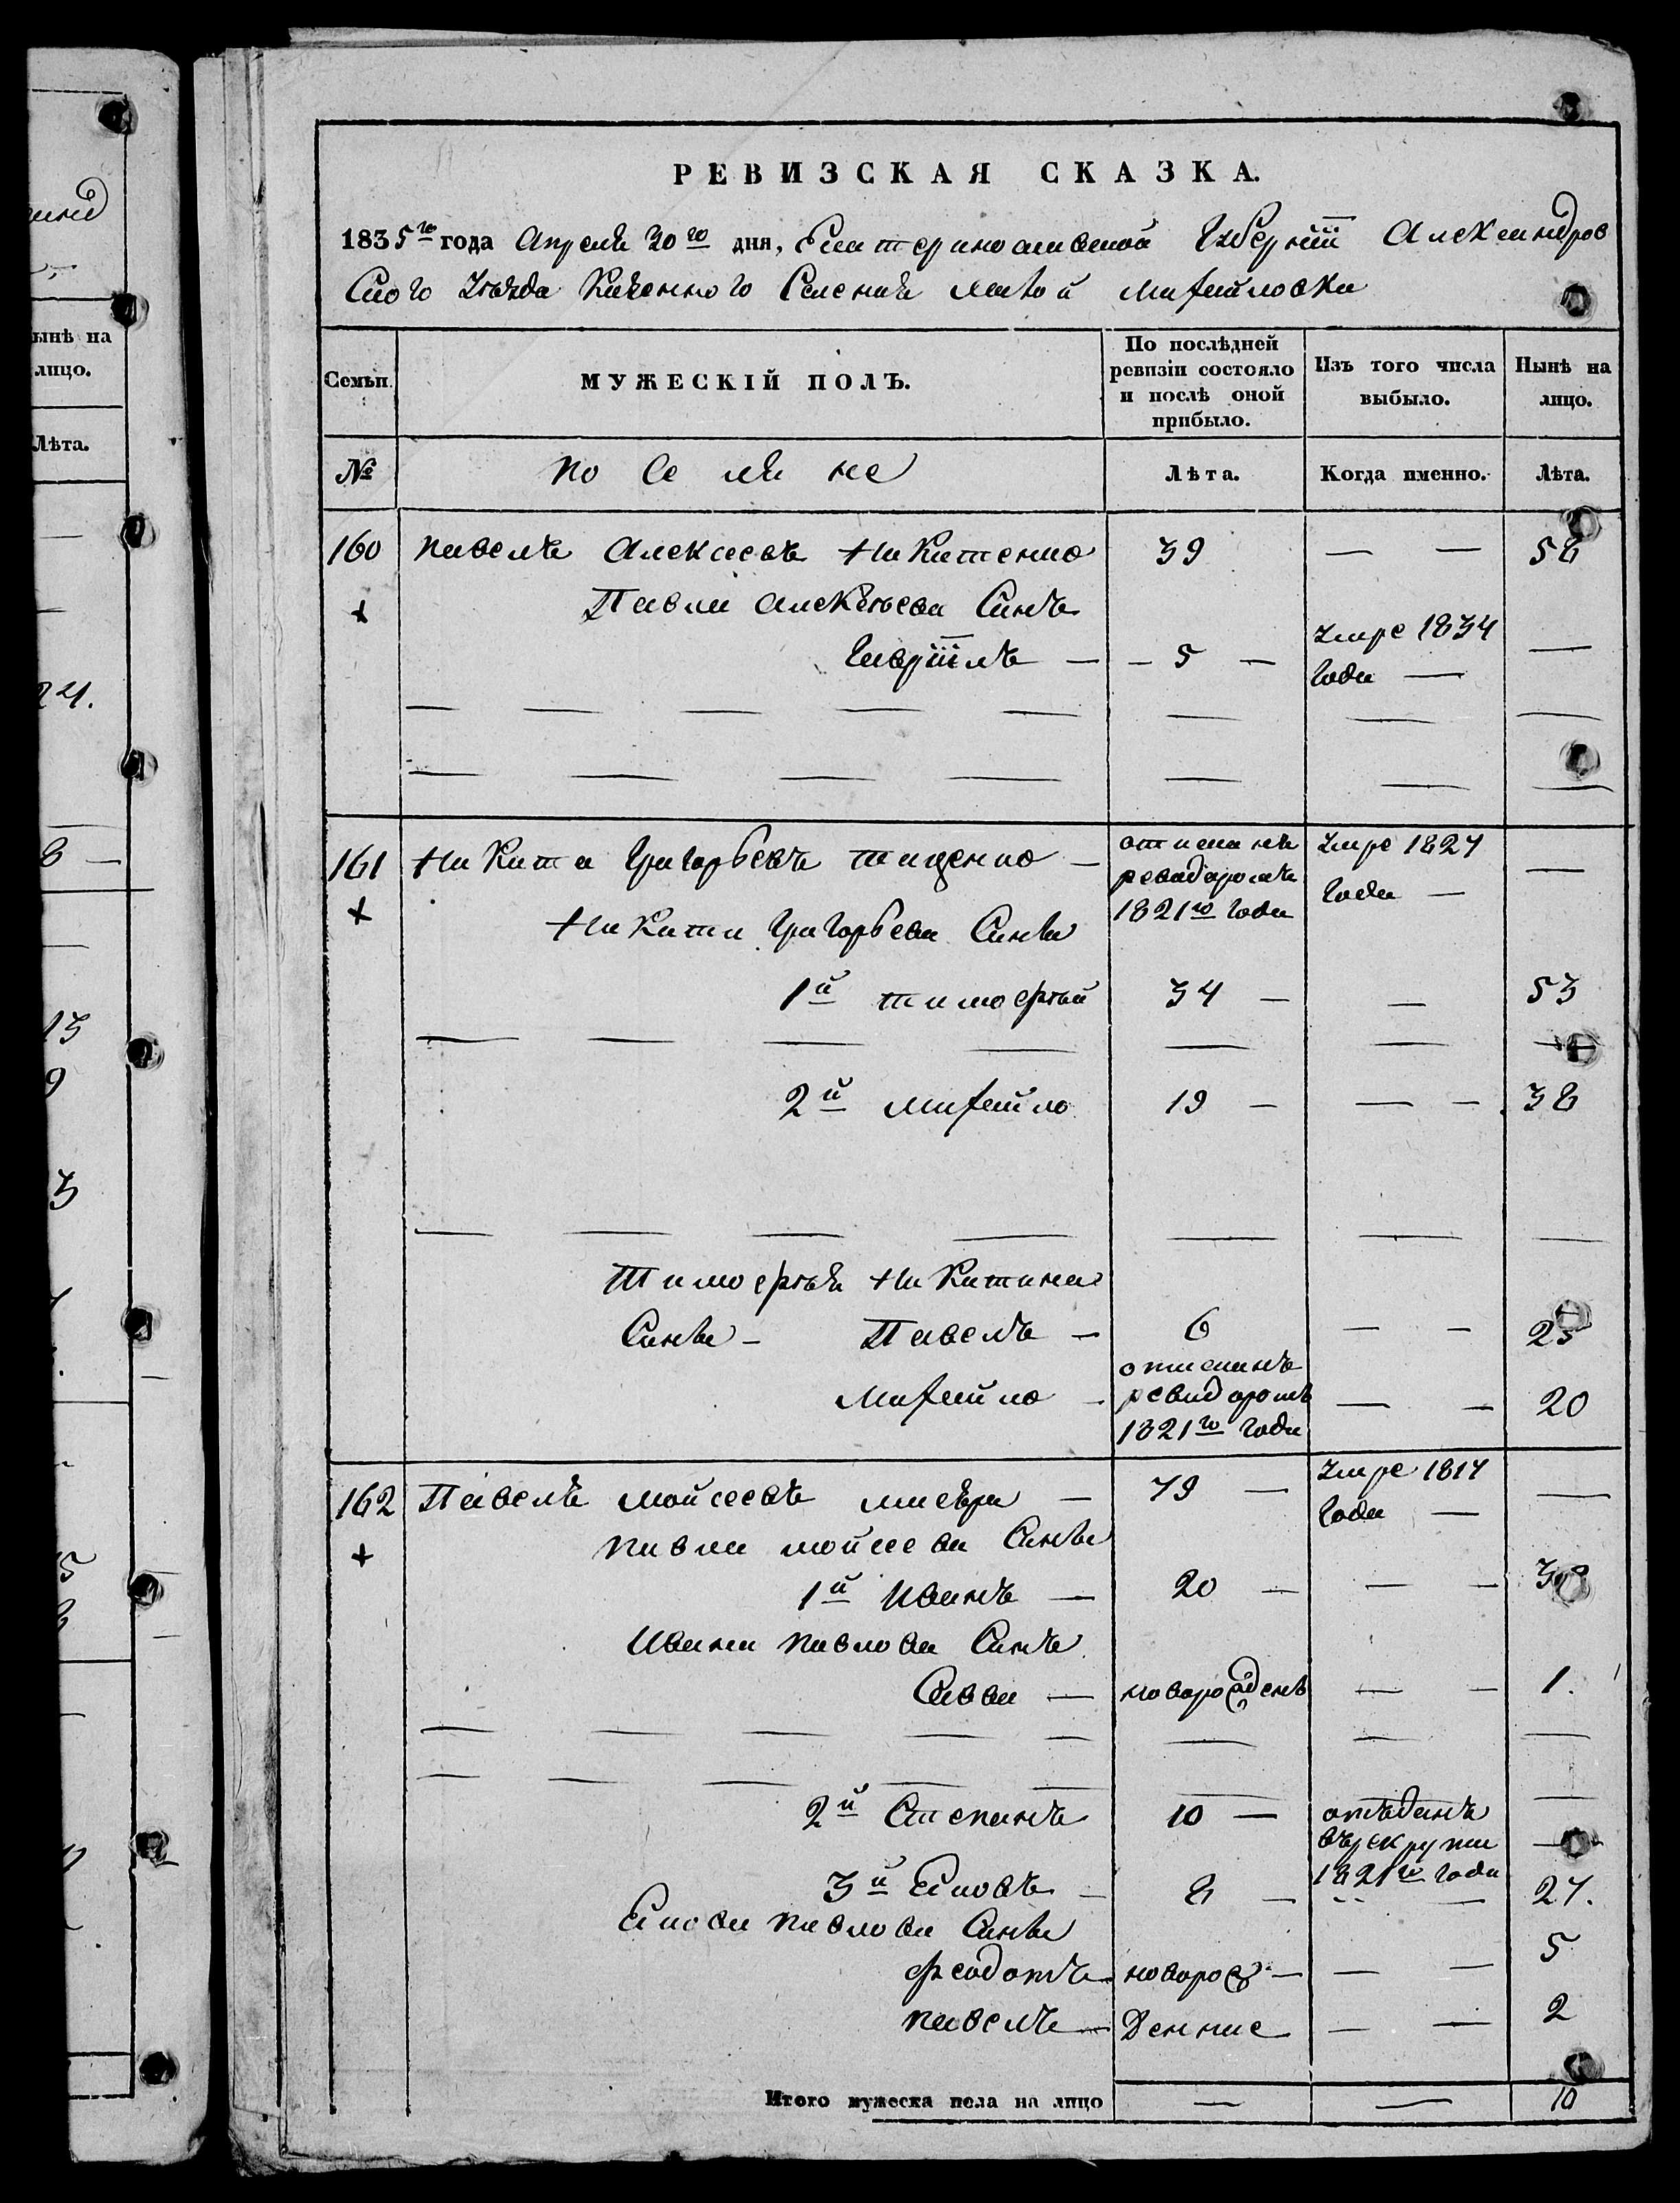 РЕВИЗСКАЯ СКАЗКА.
1835го года Апреля 30го дня, Екатеринославской Губернiи Александров
Ского Уѣзда Казенного Селения малой михайловки
Семьи.
МУЖЕСКІЙ ПОЛЪ.
По послѣдней ревизіи состояло и послѣ оной прибыло.
Изъ того числа выбыло.
Нынѣ на лицо.
№
поселяне
Лѣта.
Когда именно.
Лѣта.
160 павелъ Алексеевъ Никитенко 39 — — 58
Павла Алексѣева Синъ
Гаврiилъ — — 5 — умре 1834 года — —
161 Никита Григорьевъ тищенко —
отисканъ
ревидоромъ
1821го Года
умре 1827
Года — —
Никити Григорьева Сини
1й тимофѣй 34 — — 53
2й михайло 19 — — — 38
Тимофѣя Никитина
Сини — Павелъ — 6 — — 25
михайло —
отисканъ
ревидоромъ
1821го Года
— — 20
162 Павелъ мойсеевъ — 79 —
умре 1817
Года — —
павла мойсеева Сини
1й иванъ — 20 — — —
ивана павлова Синъ
Савва — новорожденъ — — 1.
2й Степанъ 10 —
отъданъ
въ рекрути
1821го Года
—
3й Яковъ — 8 — — 27.
Якова павлова Сини
феодотъ новорож — — — 5
павелъ — денние — — 2
Итого мужеска пола на лицо — — 10
ынѣ на
лицо.
Лѣта.